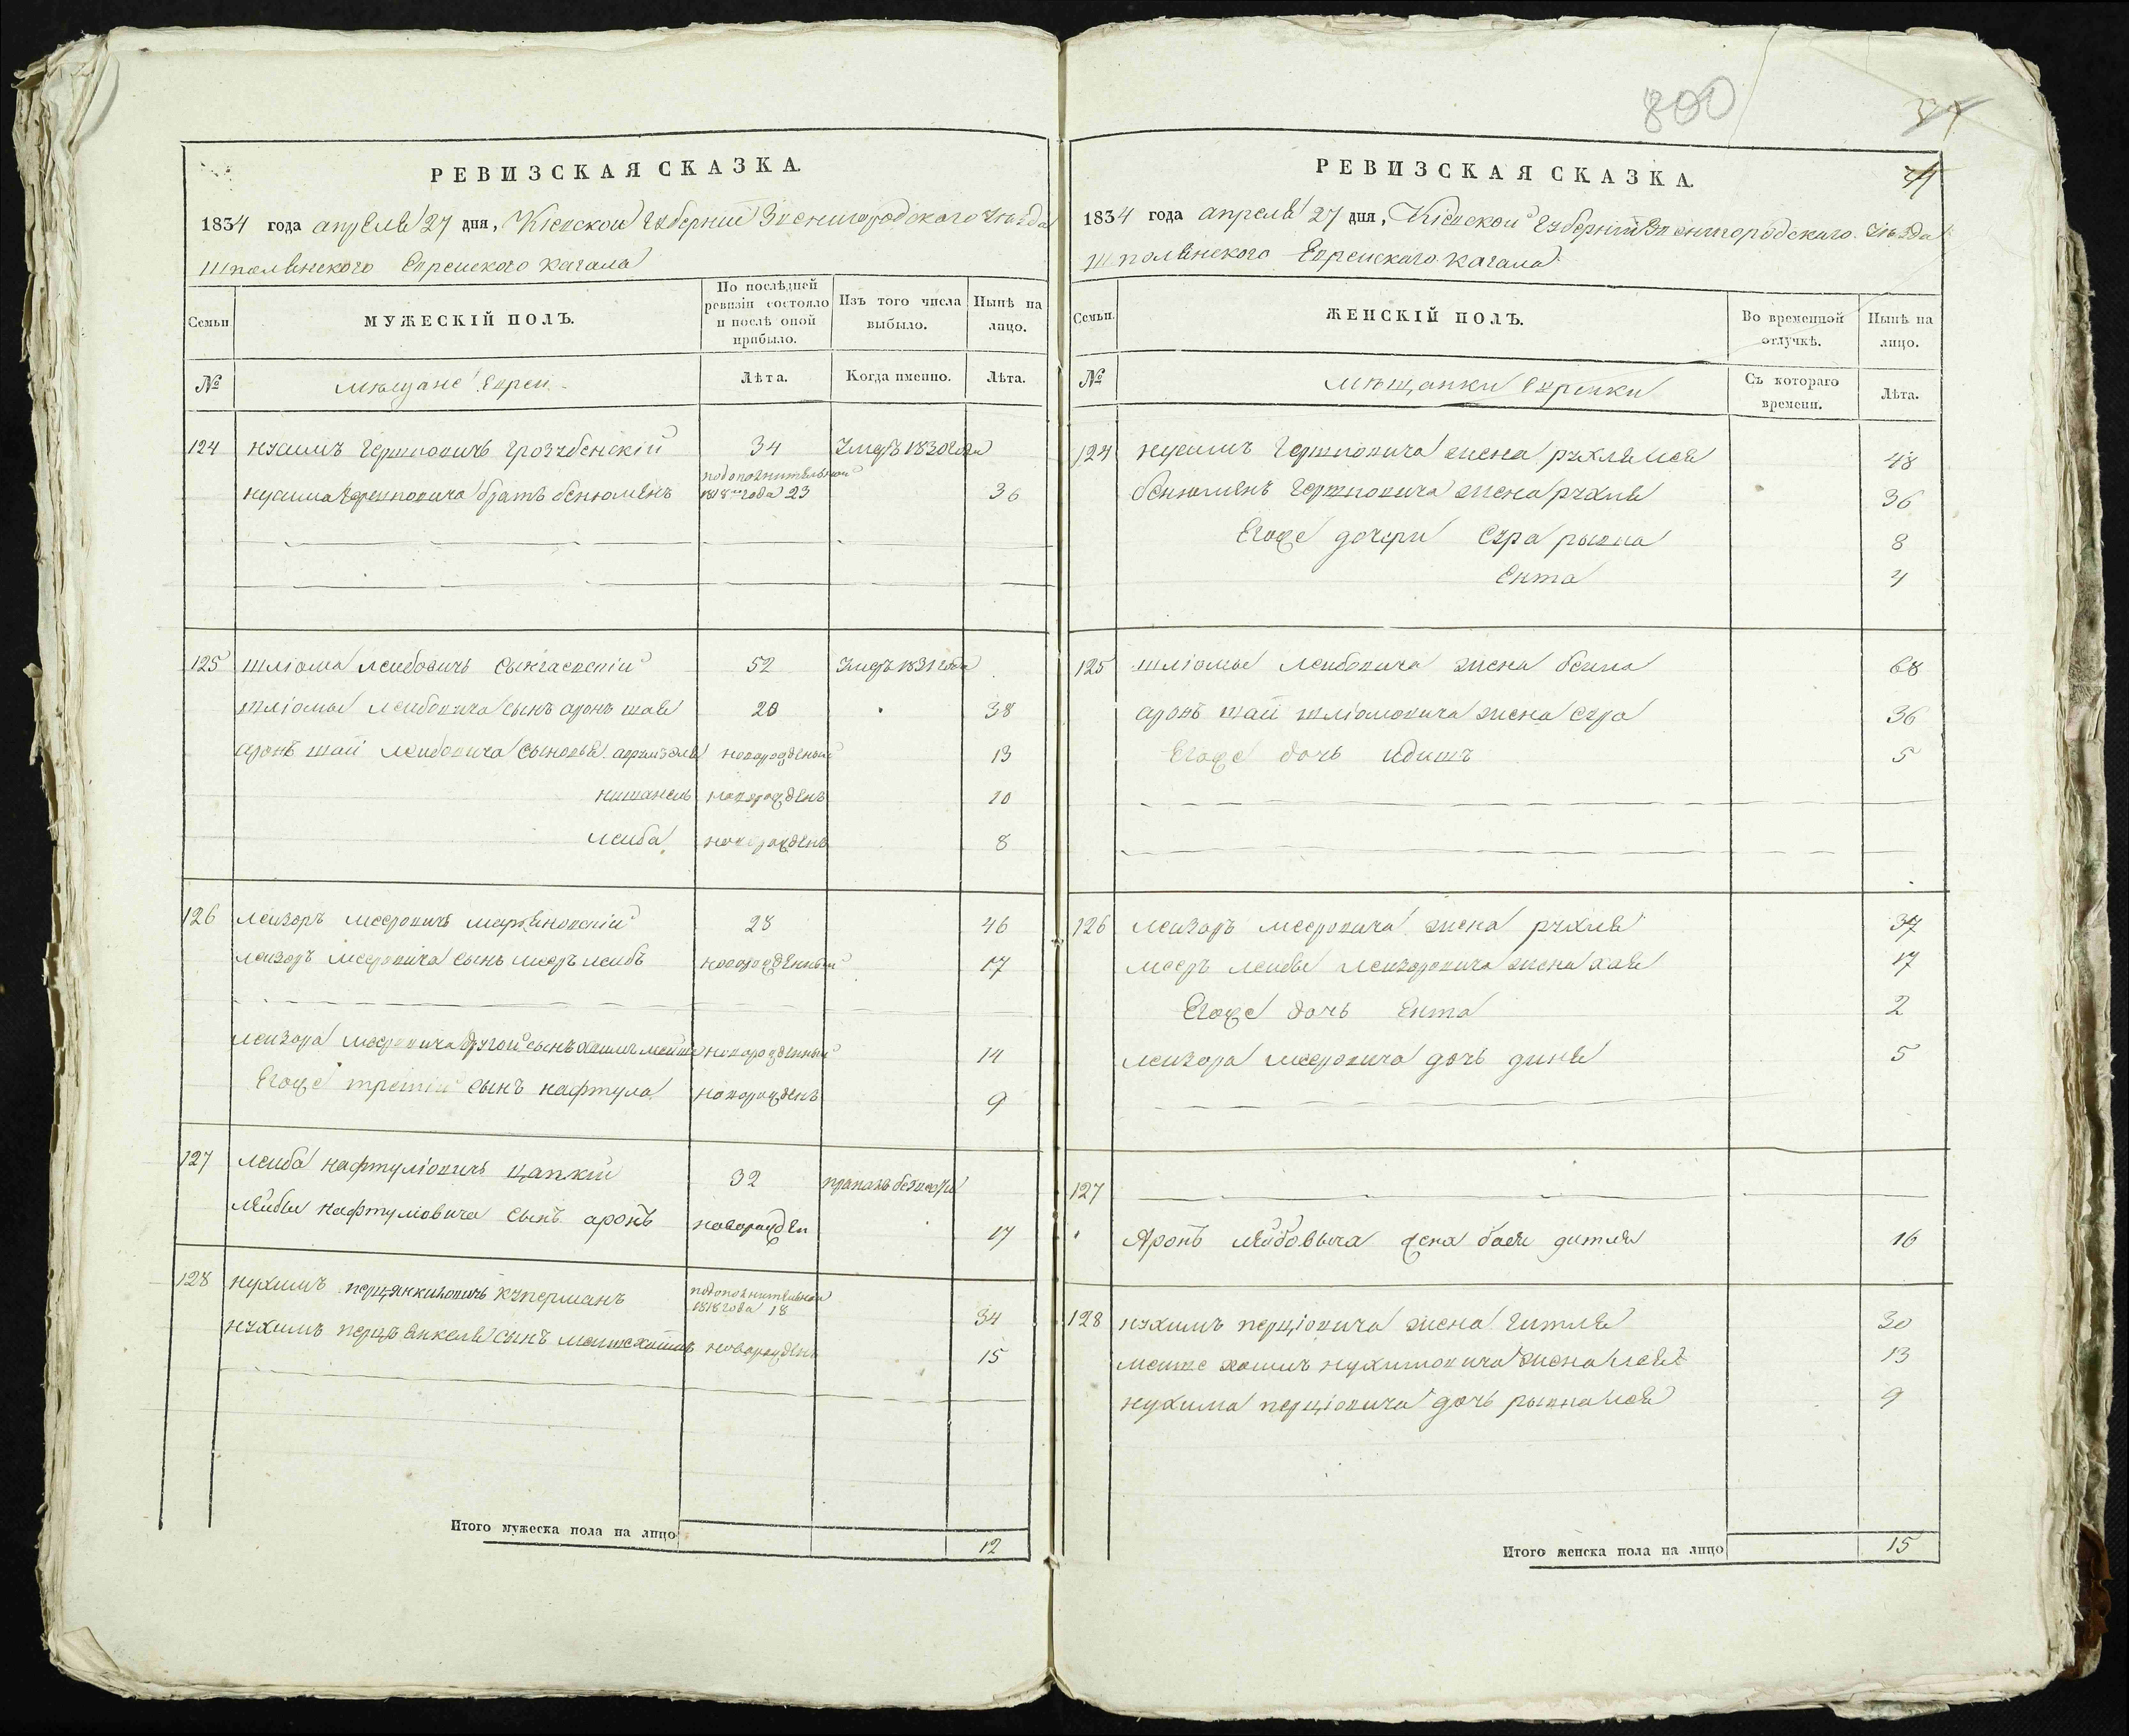 РЕВИЗСКАЯ СКАЗКА.
1834 года апреля 27 дня, Кіевской Губерніи Звенигородского Уѣзда
Шполянского Еврейского кагала
Семьи
МУЖЕСКІЙ ПОЛЪ.
По послѣдней ревизіи состояло и послѣ оной прибыло.
Изъ того числа выбыло.
Нынѣ на лицо.
№
мѣщане Евреи
Лѣта.
Когда именно.
Лѣта.
124 нухимъ Гершковичъ 34 Умеръ 1830 года
по дополнительной
Гершковича братъ бенюмѣнъ 1818 года 23 36
125 шліома лейбовичъ 52 Умеръ 1831 года
шліомы лейбовича сынъ аронъ шая 20 38
аронъ шаи лейбовича сыновья новорожденый 13
новорожденъ 10
лейба новорожденъ 8
126 лейзоръ мееровичъ 28 46
лейзоръ мееровича сынъ мееръ лейбъ новорожденный 17
лейзора мееровича другой сынъ новорожденный 14
Егоже третій сынъ нафтула новорожденъ 9
127 лейба нафтуліовичъ цапкій 32 пропалъ безъ
Лейбы нафтуліовича сынъ аронъ новорожден 17
128 нухимъ куперманъ
по дополнительной
1818 года 18 34
нухимъ сынъ новорожденъ 15
Итого мужеска пола на лицо 12
800
РЕВИЗСКАЯ СКАЗКА.
1834 года апреля 27 дня, Кіевской Губерніи Звенигородского Уѣзда
Шполянского Еврейскаго кагала
Семьи.
ЖЕНСКІЙ ПОЛЪ.
Во временной отлучкѣ.
Нынѣ на лицо.
№
мѣщанки Еврейки
Съ котораго времени.
Лѣта.
124 Гершковича жена 48
бенюмѣнъ Гершковича жена рухля 36
Егоже дочери Сура рывка 8
Ента 4
125 шліомы лейбовича жена бейла 68
аронъ шаи шліомовича жена Сура 36
Егоже дочь идисъ 5
126 лейзоръ мееровича жена рухля 37
мееръ лейбы лейзоровича жена хая 17
Егоже дочь Ента 2
лейзора мееровича дочь дина 5
127
Аронъ Лейбовыча жена бася 16
128 нухимъ перціовича жена Гитля 30
хаимъ нухимовича жена лея 13
нухима перціовича дочь рывка лея 9
Итого женска пола на лицо 15